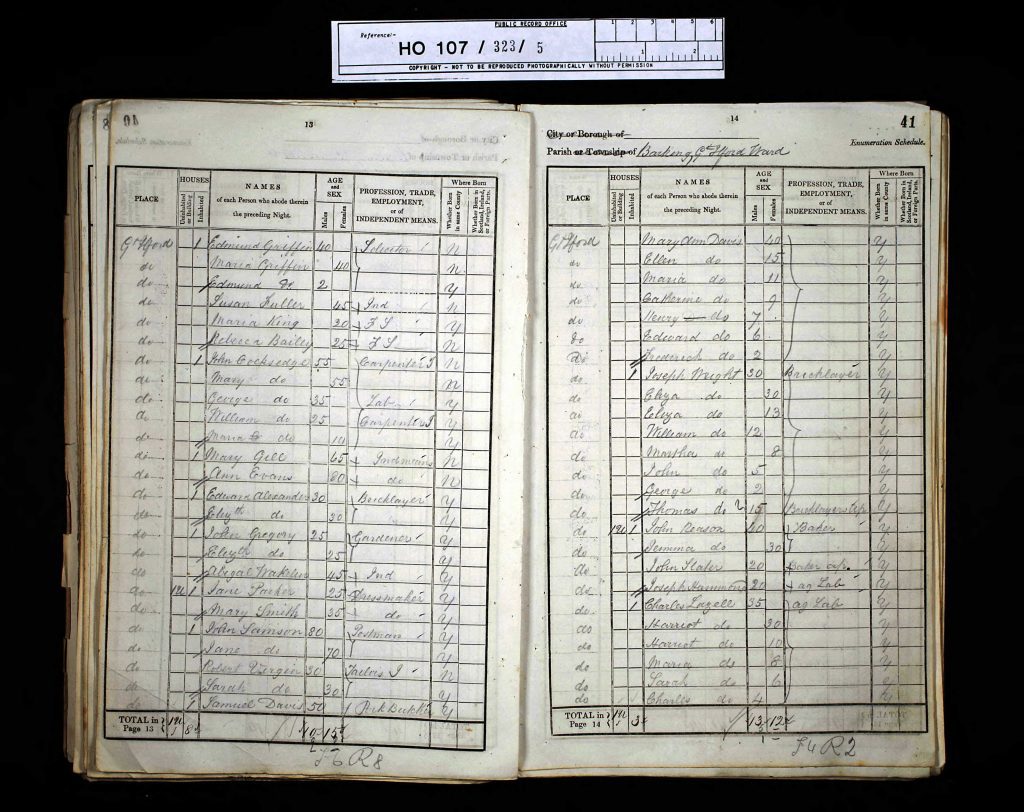 PUBLIC RECORD OFFICE
Reference:-
HO 107 / 323 / 5
1 2 3 4 5 6
1 2
COPYRIGHT - NOT TO BE REPRODUCED PHOTOGRAPHICALLY WITHOUT PERMISSION
40
13
PLACE
HOUSES
Uninhabited or Building
Inhabited
NAMES
of each Person who abode therein the preceding Night.
AGE and SEX
Males
Females
PROFESSION, TRADE, EMPLOYMENT, or of INDEPENDENT MEANS.
Where Born
Whether Born in same County
Whether Born in Scotland, Ireland, or Foreign Parts.
Gt Ilford 1 Edmund Griffin 40 Solicitor N
do Maria Griffin 40 N
do Edmund do 2 y
do Susan Fuller 45 Ind N
do Maria King 20 F S y
do Rebecca Bailey 25 F S N
do 1 John Cocksedge 55 Carpenter J N
do Mary do 55 N
do George do 35 Lab y
do William do 25 Carpenter J y
do Maria do 10 y
do 1 Mary Gill 65 Ind means N
do Ann Evans 60 do N
do 1 Edward Alexander 30 Bricklayer y
do Elizth do 30 y
do 1 John Gregory 25 Gardener y
do Elizth do 25 y
do Abigal Wakelin 45 Ind y
do 1U 1 Jane Parker 25 Dressmaker y
do Mary Smith 35 do y
do 1 John Samson 80 Postman y
do Jane do 70 y
do Robert 30 Tailor J N
do Sarah do 30 y
do 1 Samuel Davis 50 y
TOTAL in Page 13 1U 8 10 15
F 6 R 8
14
41
City or Borough of
Parish or Township of Barking Gt Ilford Ward
Enumeration Schedule.
PLACE
HOUSES
Uninhabited or Building
Inhabited
NAMES
of each Person who abode therein the preceding Night.
AGE and SEX
Males
Females
PROFESSION, TRADE, EMPLOYMENT, or of INDEPENDENT MEANS.
Where Born
Whether Born in same County
Whether Born in Scotland, Ireland, or Foreign Parts.
Gt Ilford Mary Ann Davis 40 y
do Ellen do 15 y
do Maria do 11 y
do Catherine do 9 y
do Henry do 7 y
do Edward do 6 y
do Frederick do 2 y
do 1 Joseph Wright 30 Bricklayer y
do Eliza do 30 y
do Eliza do 13 y
do William do 12 y
do Martha do 8 y
do John do 5 y
do George do 2 y
do Thomas do 15 Bricklayers Ap y
do 1U 1 John Reason 40 Baker y
do Jemima do 30 y
do John Slater 20 Baker ap. y
do Joseph Hammond 20 ag Lab y
do 1 Charles Lazell 35 ag Lab y
do Harriot do 30 y
do Harriot do 10 y
do Maria do 8 y
do Sarah do 6 y
do Charles do 4 y
TOTAL in Page 14 1U 3 13 12
F 4 R 2